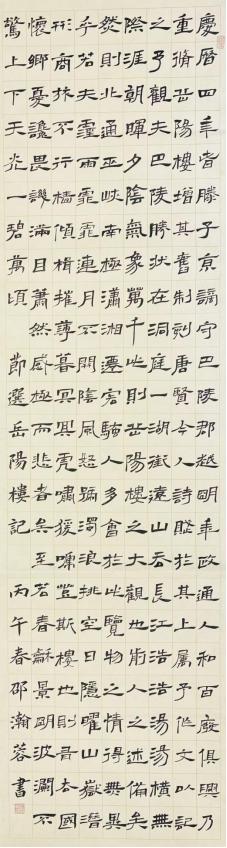 慶曆四年春滕子京謫守巴陵郡越明年政通人和百廢俱興乃
重脩岳陽樓增其舊制刻唐賢今人詩賦於其上屬予作文以記
之予觀夫巴陵勝狀在洞庭一湖銜遠山吞長江浩浩湯湯橫無
際涯朝暉夕陰氣象萬千此則岳陽樓之大觀也前人之述備矣
然則北通巫峽南極瀟湘遷客騷人多會於此覽物之情得無異
乎若夫霪雨霏霏連月不開陰風怒號濁浪排空日隱曜山嶽潛
形商旅不行檣傾楫摧薄暮冥冥虎嘯猨啼登斯樓也則有去國
懷鄉憂讒畏譏滿目蕭然感極而悲者矣至若春龢景明波瀾不
驚上下天光一碧萬頃 節選岳陽樓記 丙午春邵瀚蓉書